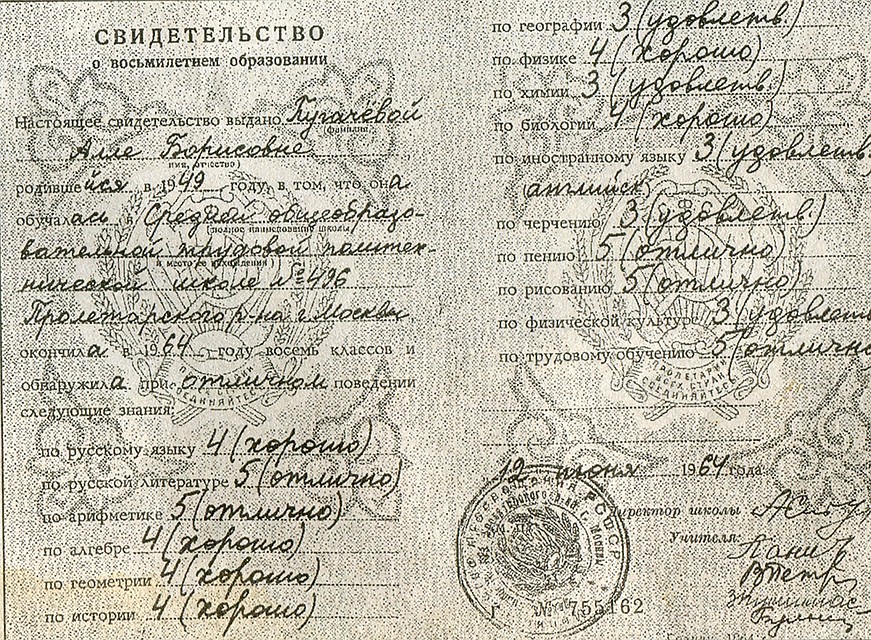 СВИДЕТЕЛЬСТВО
о восьмилетнем образовании
Настоящее свидетельство выдано Пугачёвой
(фамилия,
Алле Борисовне
имя, отчество)
родившейся в 1949 году, в том, что она
обучалась в Средней общеобразо-
(полное наименование школы
вательной трудовой политех-
и место ее нахождения)
нической школе №496
Пролетарского р-на г. Москвы
окончила в 1964 году восемь классов и
обнаружила при отличном поведении
следующие знания:
по русскому языку 4 (хорошо)
по русской литературе 5 (отлично)
по арифметике 5 (отлично)
по алгебре 4 (хорошо)
по геометрии 4 (хорошо)
по истории 4 (хорошо)
по географии 3 (удовлетв.)
по физике 4 (хорошо)
по химии 3 (удовлетв.)
по биологии 4 (хорошо)
по иностранному языку 3 (удовлетв.
английск)
по черчению 3 (удовлетв.)
по пению 5 (отлично)
по рисованию 5 (отлично)
по физической культуре 3 (удовлетв
по трудовому обучению 5 (отлично
ПРОЛЕТАРИИ
ВСЕХ СТРАН
СОЕДИНЯЙТЕСЬ
12 июня 1964 года
Директор школы
Учителя:
РСФСР
г. Москвы
Г № 755162